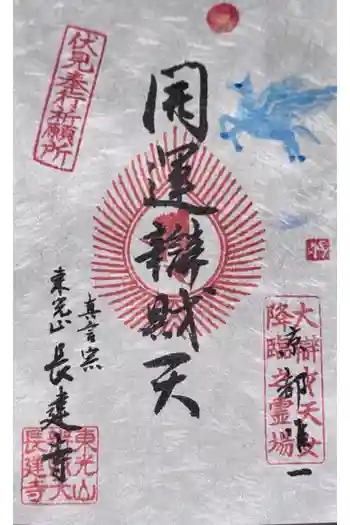 大辯財天女
降臨之霊場
京都唯一
開運辯財天
伏見奉行祈願所
真言宗
東光山 長建寺
東光山
辯財天
長建寺